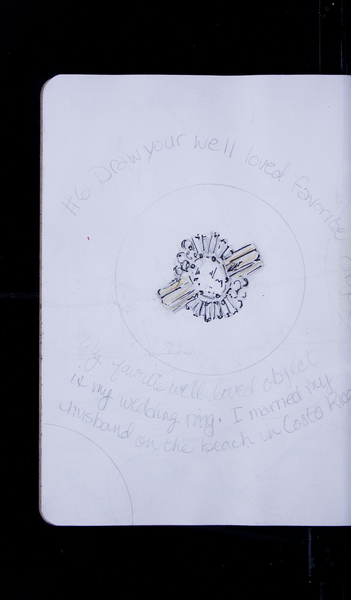 #6 Draw your well loved favorite
My favorite well loved object
is my wedding ring. I married my
husband on the beach in Costa Rica